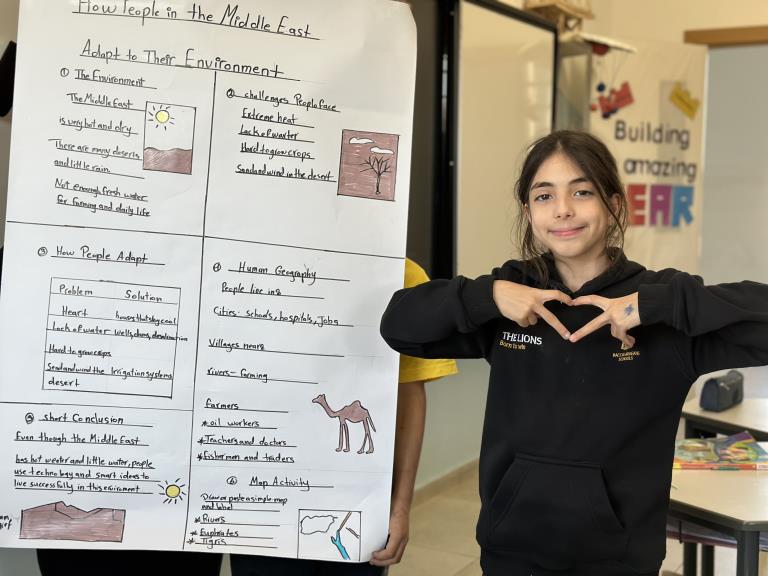 How People in the Middle East
Adapt to Their Environment
① The Environment
The Middle East
is very hot and dry
There are many deserts
and little rain.
Not enough fresh water
for farming and daily life
② challenges People face
Extreme heat
Lack of warter
Hard to grow crops
Sand and wind in the desert
③ How People Adapt
Problem Solution
Heart houses that stay cool
Lack of water wells, dams, desalination
Hard to grow crops
Sand and wind the Irrigation systems
desert
④ Human Geography
People live in:
Cities- schools, hospitals, Jobs
Villages near:
rivers- farming
farmers
*oil workers
*Teachers and doctors
*Fisherman and traders
⑤ short Conclusion
Even though the Middle East
has hot weeter and little water, people
use technology and smart ideas to
live successfully in this enviroment
⑥ Map Activity
Draw or paste a simple map
and label
*Rivers
*Euphrates
*Tigris
THE LIONS
Born to win
BACCALAUREATE
SCHOOLS
Building
amazing
EAR